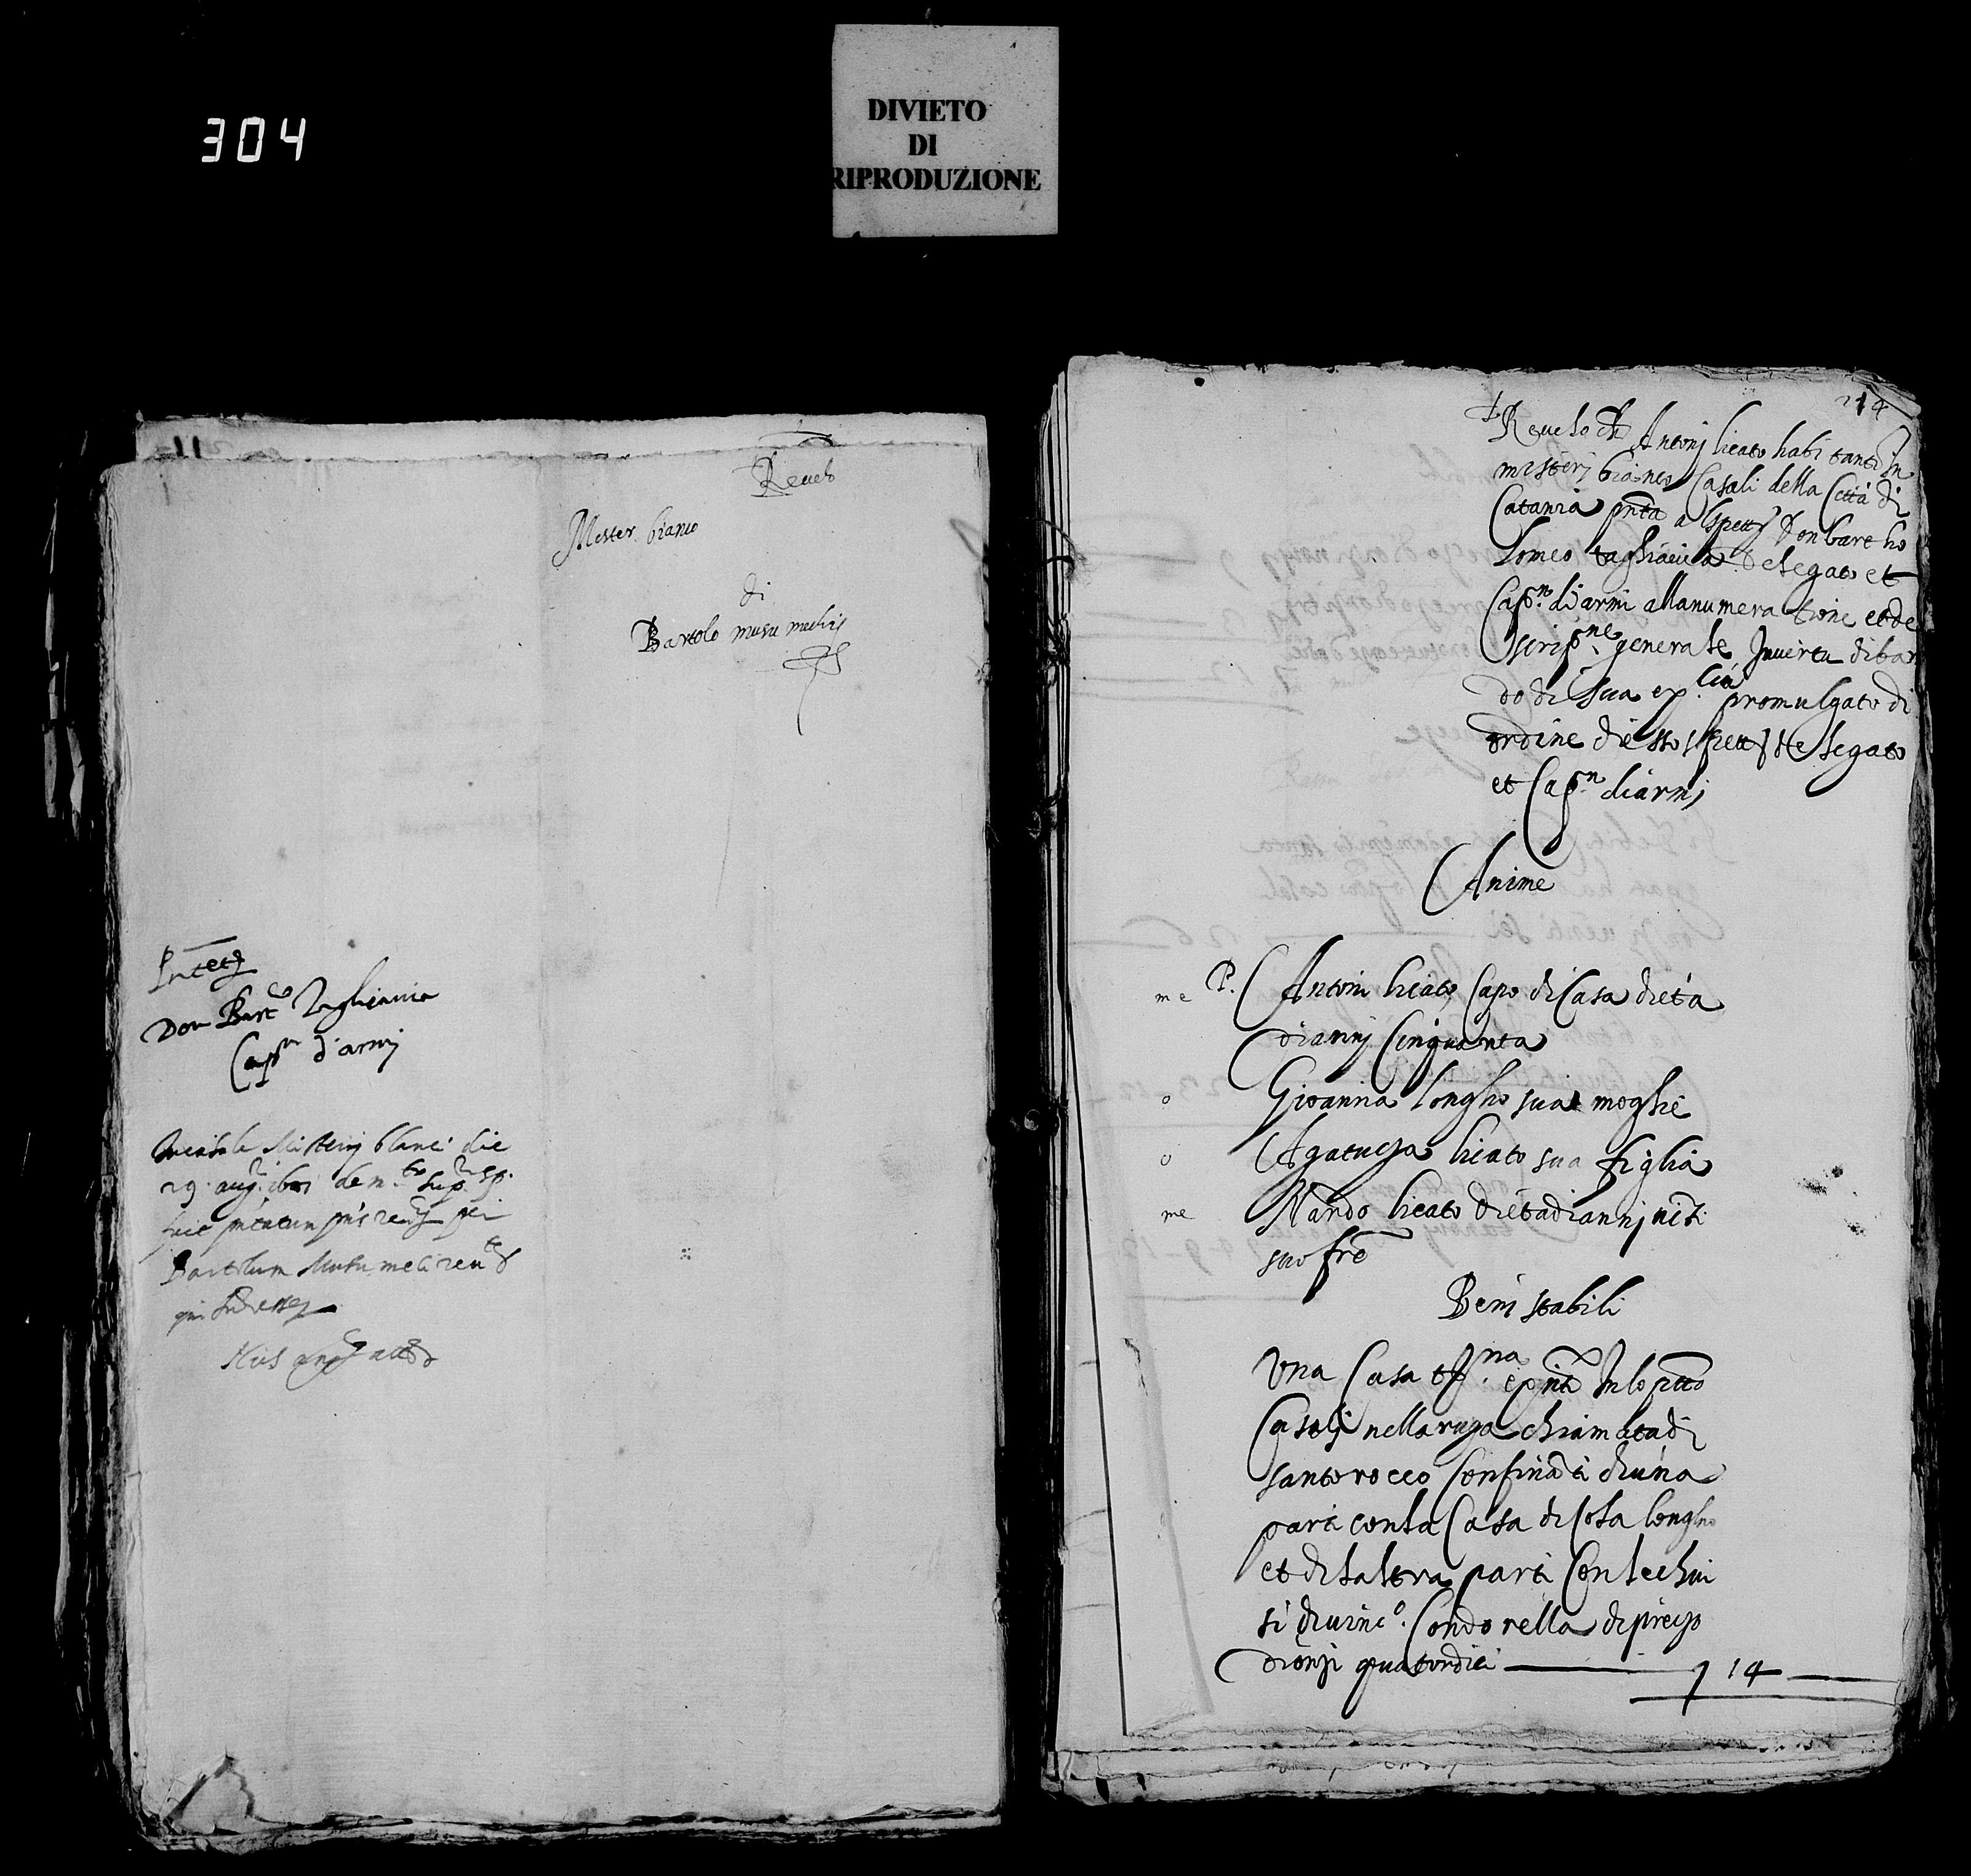 304
DIVIETO
DI
RIPRODUZIONE
Revelo
Mester bianco
di
Bartolo musu mechi
Don Bart.co Tagliavia
Capn d'armi
Misterij blanci die
29 aug.
Bartolum Musumeci
214
Revelo di Antonj licato habitanti In
misterj bianco Casali della Città di
Catania pnta a lspett.e Don Bartho
lomeo tagliavia Delegato et
Cap.no di armi alla numeratione et de
scrip.ne generale Juvirtu di ban
do di sua ex.cia promulgato di
ordine di esso spett.e delegato
et Cap.n di armj
Anime
me P. Antoni licato Capo di Casa di eta
di annj Cinquanta
o Gioanna longho sua moglie
o Agatuza licato sua figlia
me Nardo licato di eta di annj
suo fre
Beni stabili
Una Casa In lo ptto
Casali nella ruga chiamata di
santo rocco Confinanti di una
parti con la Casa di Cola longho
et di laltra parti Con lechiu
si di vinc.o Condorella di prezo
di onzi quatordici 14